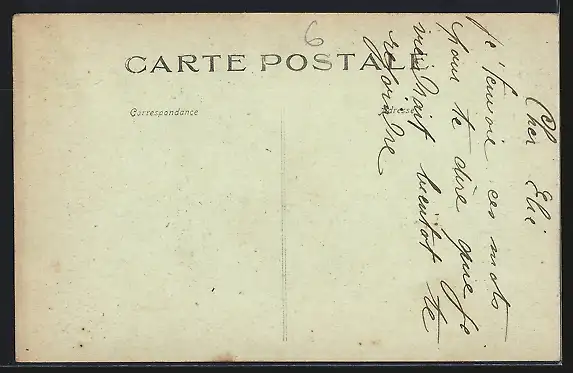 6
CARTE POSTALE
Correspondance
Adresse
Cher Elie
je t'envoie ces mots
pour te dire que je
viendrait bientot te
rejoindre